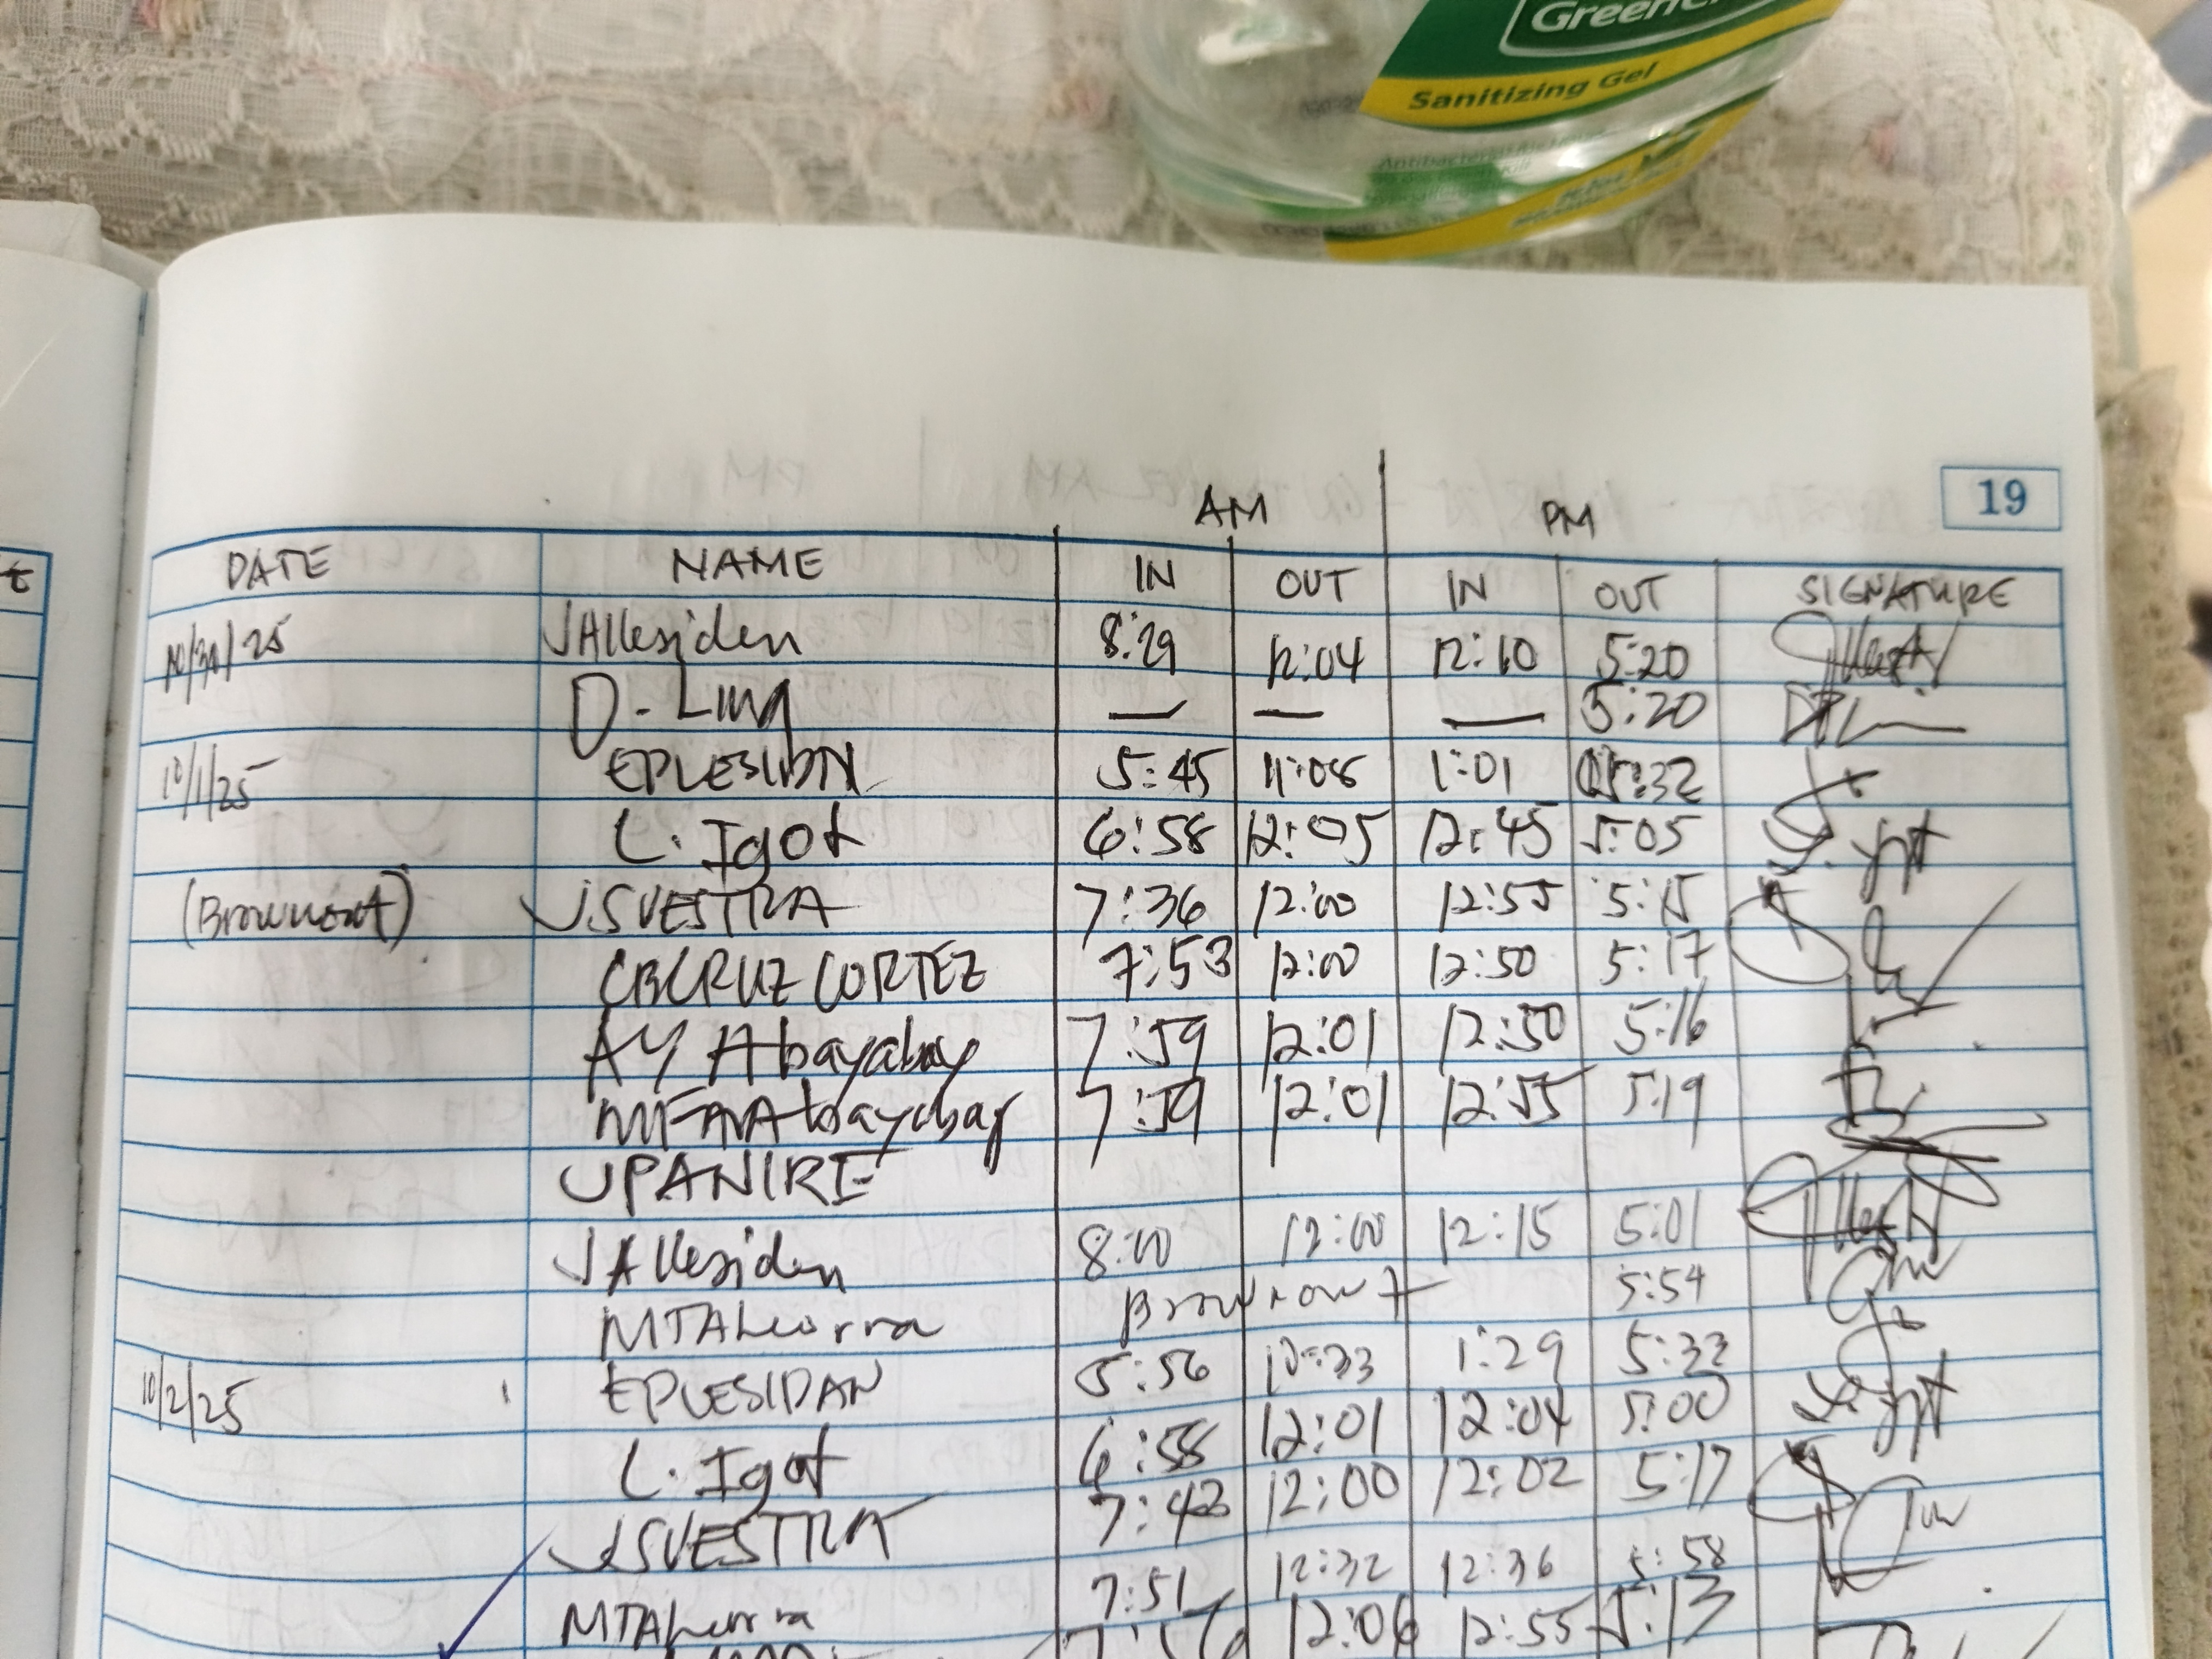 Sanitizing Gel
19
AM PM
DATE NAME IN OUT IN OUT SIGNATURE
/25 JAllesiden 8:29 12:04 12:10 5:20
D. Ling — — — 5:20
10/1/25 EPLESIDAN 5:45 11:08 1:01 5:32
L. Igot 6:58 12:05 12:45 5:05
(Brownout) JSVESTRA 7:36 12:00 12:55 5:15
CBCRUZ CORTEZ 7:53 12:00 12:50 5:17
AY Abayabay 7:59 12:01 12:50 5:16
7:59 12:01 12:55 5:19
UPANIRE
JAllesiden 8:00 12:00 12:15 5:01
Brownout 5:54
10/2/25 EPLESIDAN 5:56 10:33 1:29 5:33
L. Igot 6:58 12:01 12:04 5:00
JSVESTRA 7:43 12:00 12:02 5:17
7:51 12:32 12:36 5:58
12:06 12:55 5:13